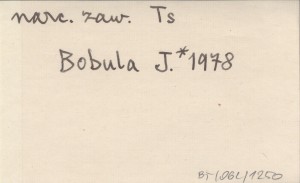 narc. zaw. Ts
Bobula J.*1978
BT/OGL/1250